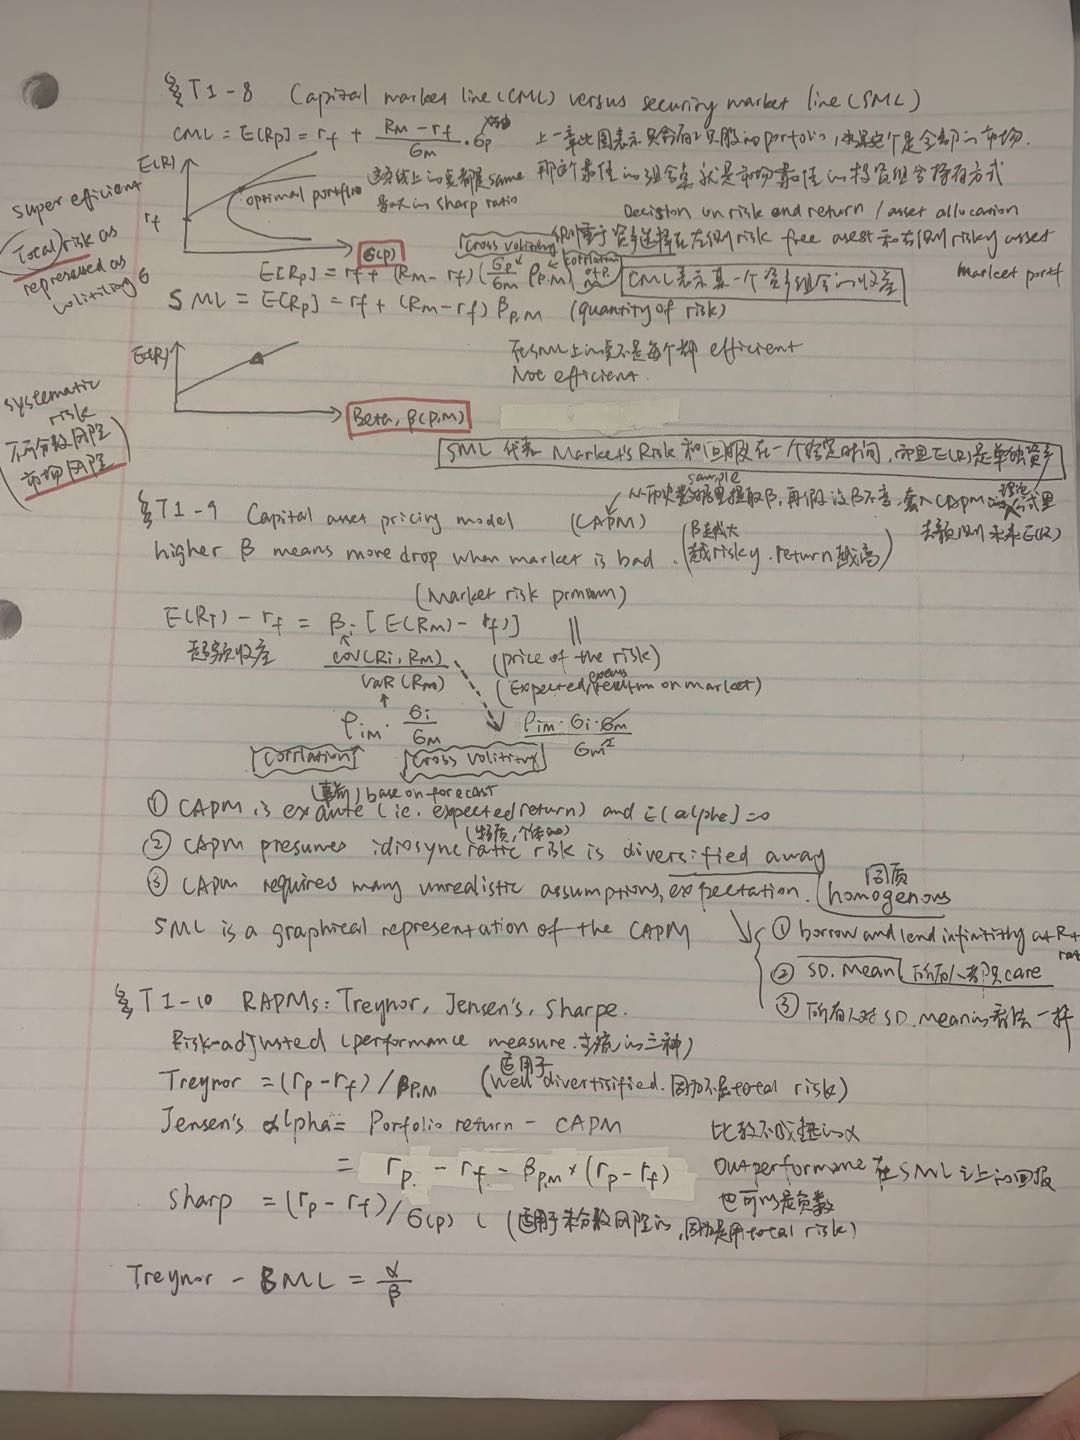 § T1-8 Capital market line (CML) versus security market line (SML)
CML = E[Rp] = rf + (Rm - rf)/σm · σp
上一章此图表示只含有2只股的portfolio,
那这个最佳的组合点就是市场最佳的投资组合持有方式
E(R)
super efficient
Total risk as
represed as
rf
optimal portflio
这条线上的点都是same
最大的sharp ratio
σ(p)
Decision on risk and return / asset allocation
侧重于资产选择在左侧risk free asest和右侧risky asset
market portf
Cross volitity
E[Rp] = rf + (Rm - rf) (σp/σm ρp,m)
CML表示某一个资产组合的收益
SML = E[Rp] = rf + (Rm - rf) βp,M (quantity of risk)
E(R)
在SML上的点不是每个都 efficient
Not efficient.
systematic
risk
不可分散风险
市场风险
Beta, β(P,M)
SML 代表 Market's Risk 和回报在一个给定时间,而且E(R)是单独资产
§ T1-9 Capital asset pricing model (CAPM)
sample
从历史数据里提取β,再假设β不变,套入CAPM理论公式里
去预测未来E(R)
higher β means more drop when market is bad. (β越大
越risky. return越高)
(Market risk prmium)
E(Ri) - rf = βi [E(RM) - rf)]
超额收益
cov(Ri, RM)
VaR (Rm)
(price of the risk)
(Expected excess return on market)
ρim · σi/σM
ρim · σi · σm / σm²
Corrlation
Cross volitity
(事前) base on forecast
① CAPM is exante (ie. expected return) and E[alpha]=0
(特质,个体的)
② CAPM presumes idiosyncratic risk is diversified away
③ CAPM requires many unrealistic assumptions, expectation. homogenous
同质
SML is a graphical representation of the CAPM
① borrow and lend infinitity at Rf
② SD. Mean 所有人都只care
③ 所有人对SD. mean的看法一样
§ T1-10 RAPMs: Treynor, Jensen's, Sharpe.
Risk-adjusted (performance measure. 主流的三种)
Treynor = (rp - rf) / βP,M (适用于 well divertisified. 因为不是total risk)
Jensen's alpha = Porfolio return - CAPM
= rp. - rf - βp,m × (rp - rf)
outperformane 在SML之上的回报
也可以是负数
sharp = (rp - rf) / σ(p) ( (适用于未分散风险的,因为是用total risk)
Treynor - SML = α/β